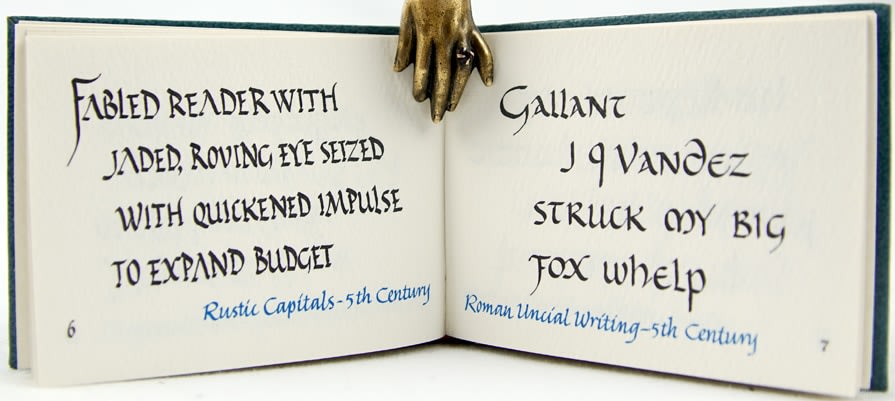 FABLED READER WITH
JADED, ROVING EYE SEIZED
WITH QUICKENED IMPULSE
TO EXPAND BUDGET
Rustic Capitals-5th Century
6
Gallant
J q Vandez
struck my big
fox whelp
Roman Uncial Writing-5th Century
7